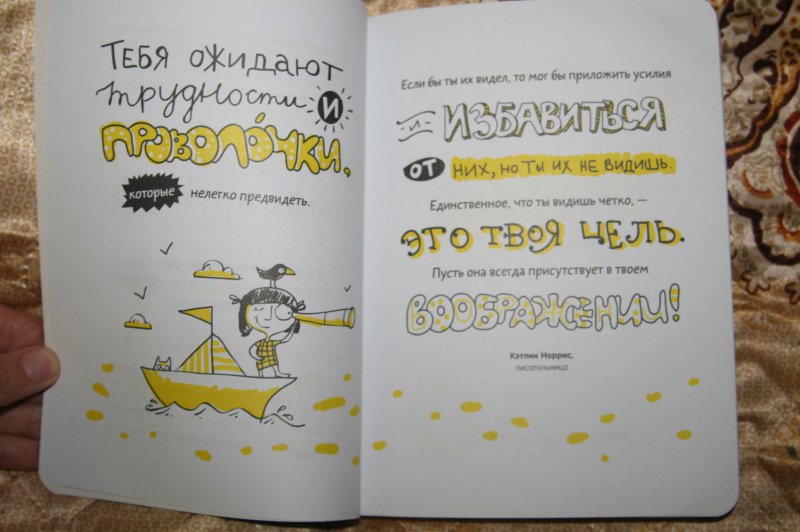 ТЕБЯ ОЖИДАЮТ
трудности И
ПРОВОЛО́ЧКИ,
которые нелегко предвидеть.
Если бы ты их видел, то мог бы приложить усилия
И ИЗБАВИТЬСЯ
ОТ НИХ, НО ТЫ ИХ НЕ ВИДИШЬ.
Единственное, что ты видишь четко, —
ЭТО ТВОЯ ЦЕЛЬ.
Пусть она всегда присутствует в твоем
ВООБРАЖЕНИИ!
Кэтлин Норрис,
писательница